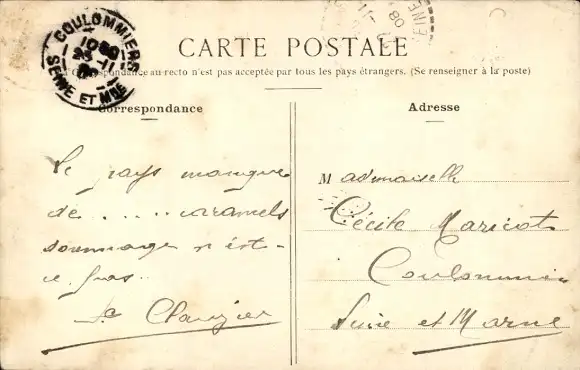 COULOMMIERS
10
23 -11
SEINE ET MNE
08
CARTE POSTALE
La Correspondance au recto n'est pas acceptée par tous les pays étrangers. (Se renseigner à la poste)
Correspondance
Le pays manque
de ..... caramels
dommage n'est-
ce pas..
Adresse
Mademoiselle
Cécile Maricot
Coulommiers
Seine et Marne